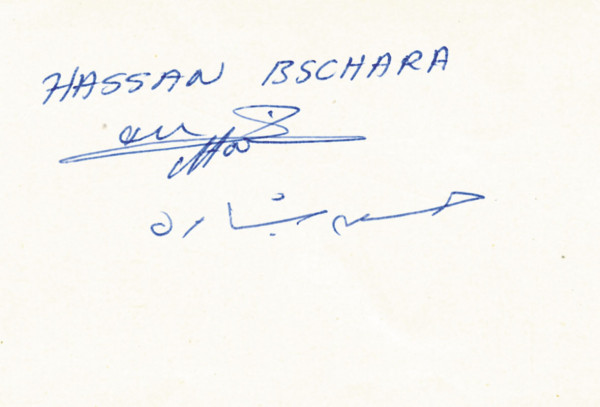 HASSAN BSCHARA
حسن بشاره